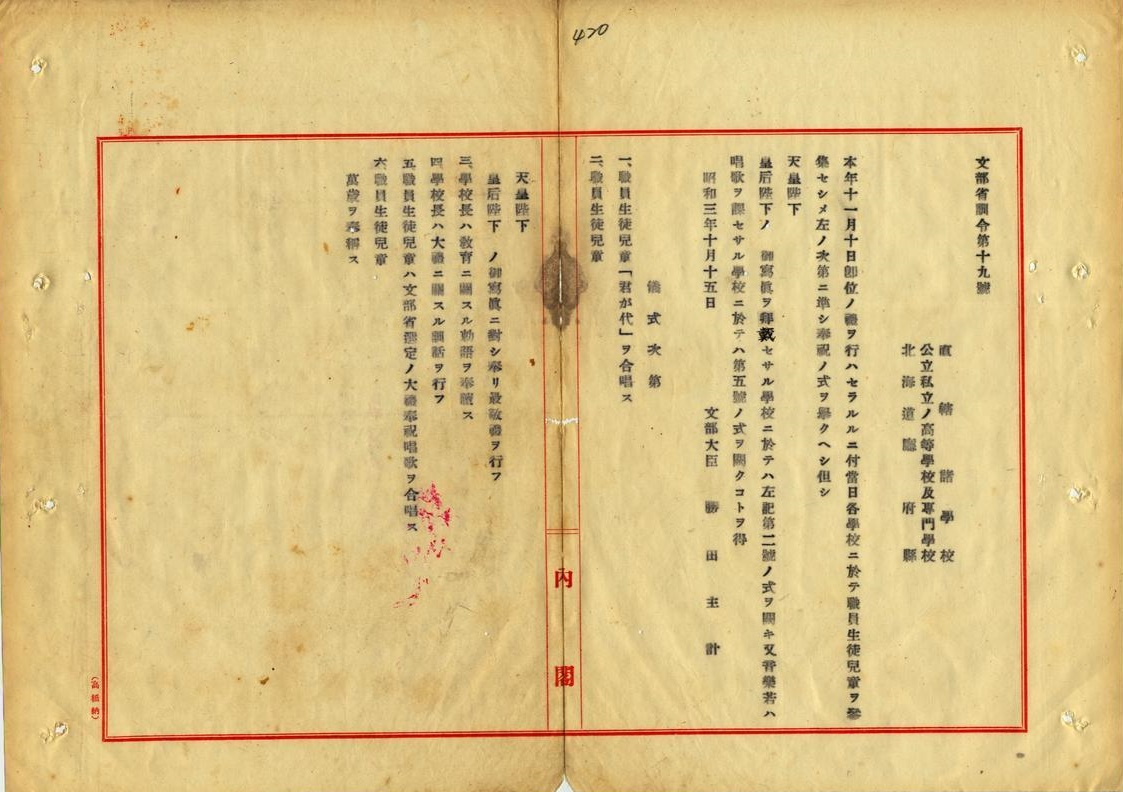 420
文部省訓令第十九號
直轄諸學校
公立私立ノ高等學校及專門學校
北海道廳府縣
本年十一月十日卽位ノ禮ヲ行ハセラルルニ付當日各學校ニ於テ職員生徒兒童ヲ參
集セシメ左ノ次第ニ準シ奉祝ノ式ヲ擧クヘシ但シ
天皇陛下
皇后陛下ノ 御寫眞ヲ拜戴セサル學校ニ於テハ左記第二號ノ式ヲ闕キ又音樂若ハ
唱歌ヲ課セサル學校ニ於テハ第五號ノ式ヲ闕クコトヲ得
昭和三年十月十五日
文部大臣 勝田主計
儀式次第
一、職員生徒兒童「君が代」ヲ合唱ス
二、職員生徒兒童
天皇陛下
皇后陛下 ノ御寫眞ニ對シ奉リ最敬禮ヲ行フ
三、學校長ハ敎育ニ關スル勅語ヲ奉讀ス
四、學校長ハ大禮ニ關スル訓話ヲ行フ
五、職員生徒兒童ハ文部省選定ノ大禮奉祝唱歌ヲ合唱ス
六、職員生徒兒童
萬歲ヲ奉稱ス
內閣
(高橋納)